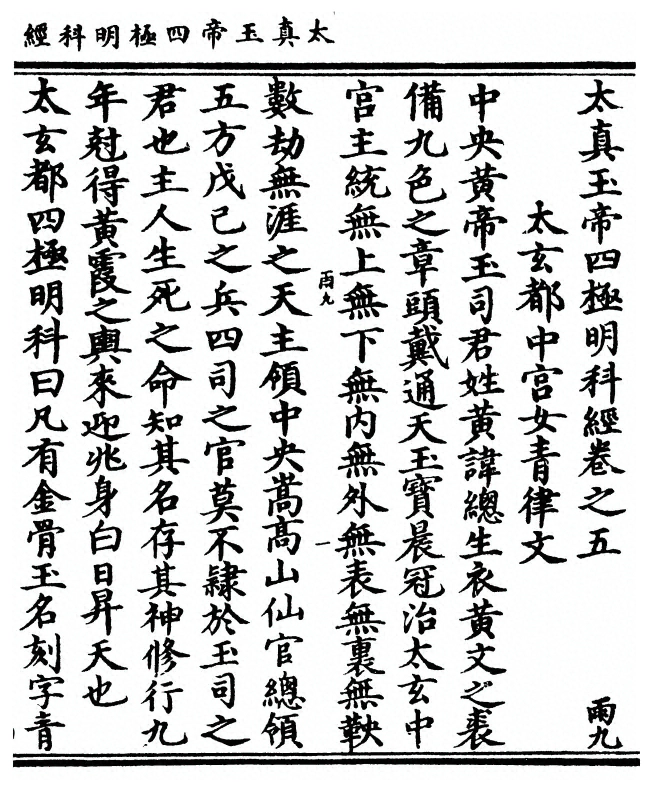 太真玉帝四極明科經
太真玉帝四極明科經卷之五
雨九
太玄都中宮女青律文
中央黃帝玉司君姓黃諱總生衣黃文之裘
備九色之章頭戴通天玉寶晨冠治太玄中
宮主統無上無下無內無外無表無裏無鞅
雨九
一
數劫無涯之天主領中央嵩高山仙官總領
五方戊己之兵四司之官莫不隸於玉司之
君也主人生死之命知其名存其神修行九
年尅得黃霞之輿來迎兆身白日昇天也
太玄都四極明科曰凡有金骨玉名刻字青